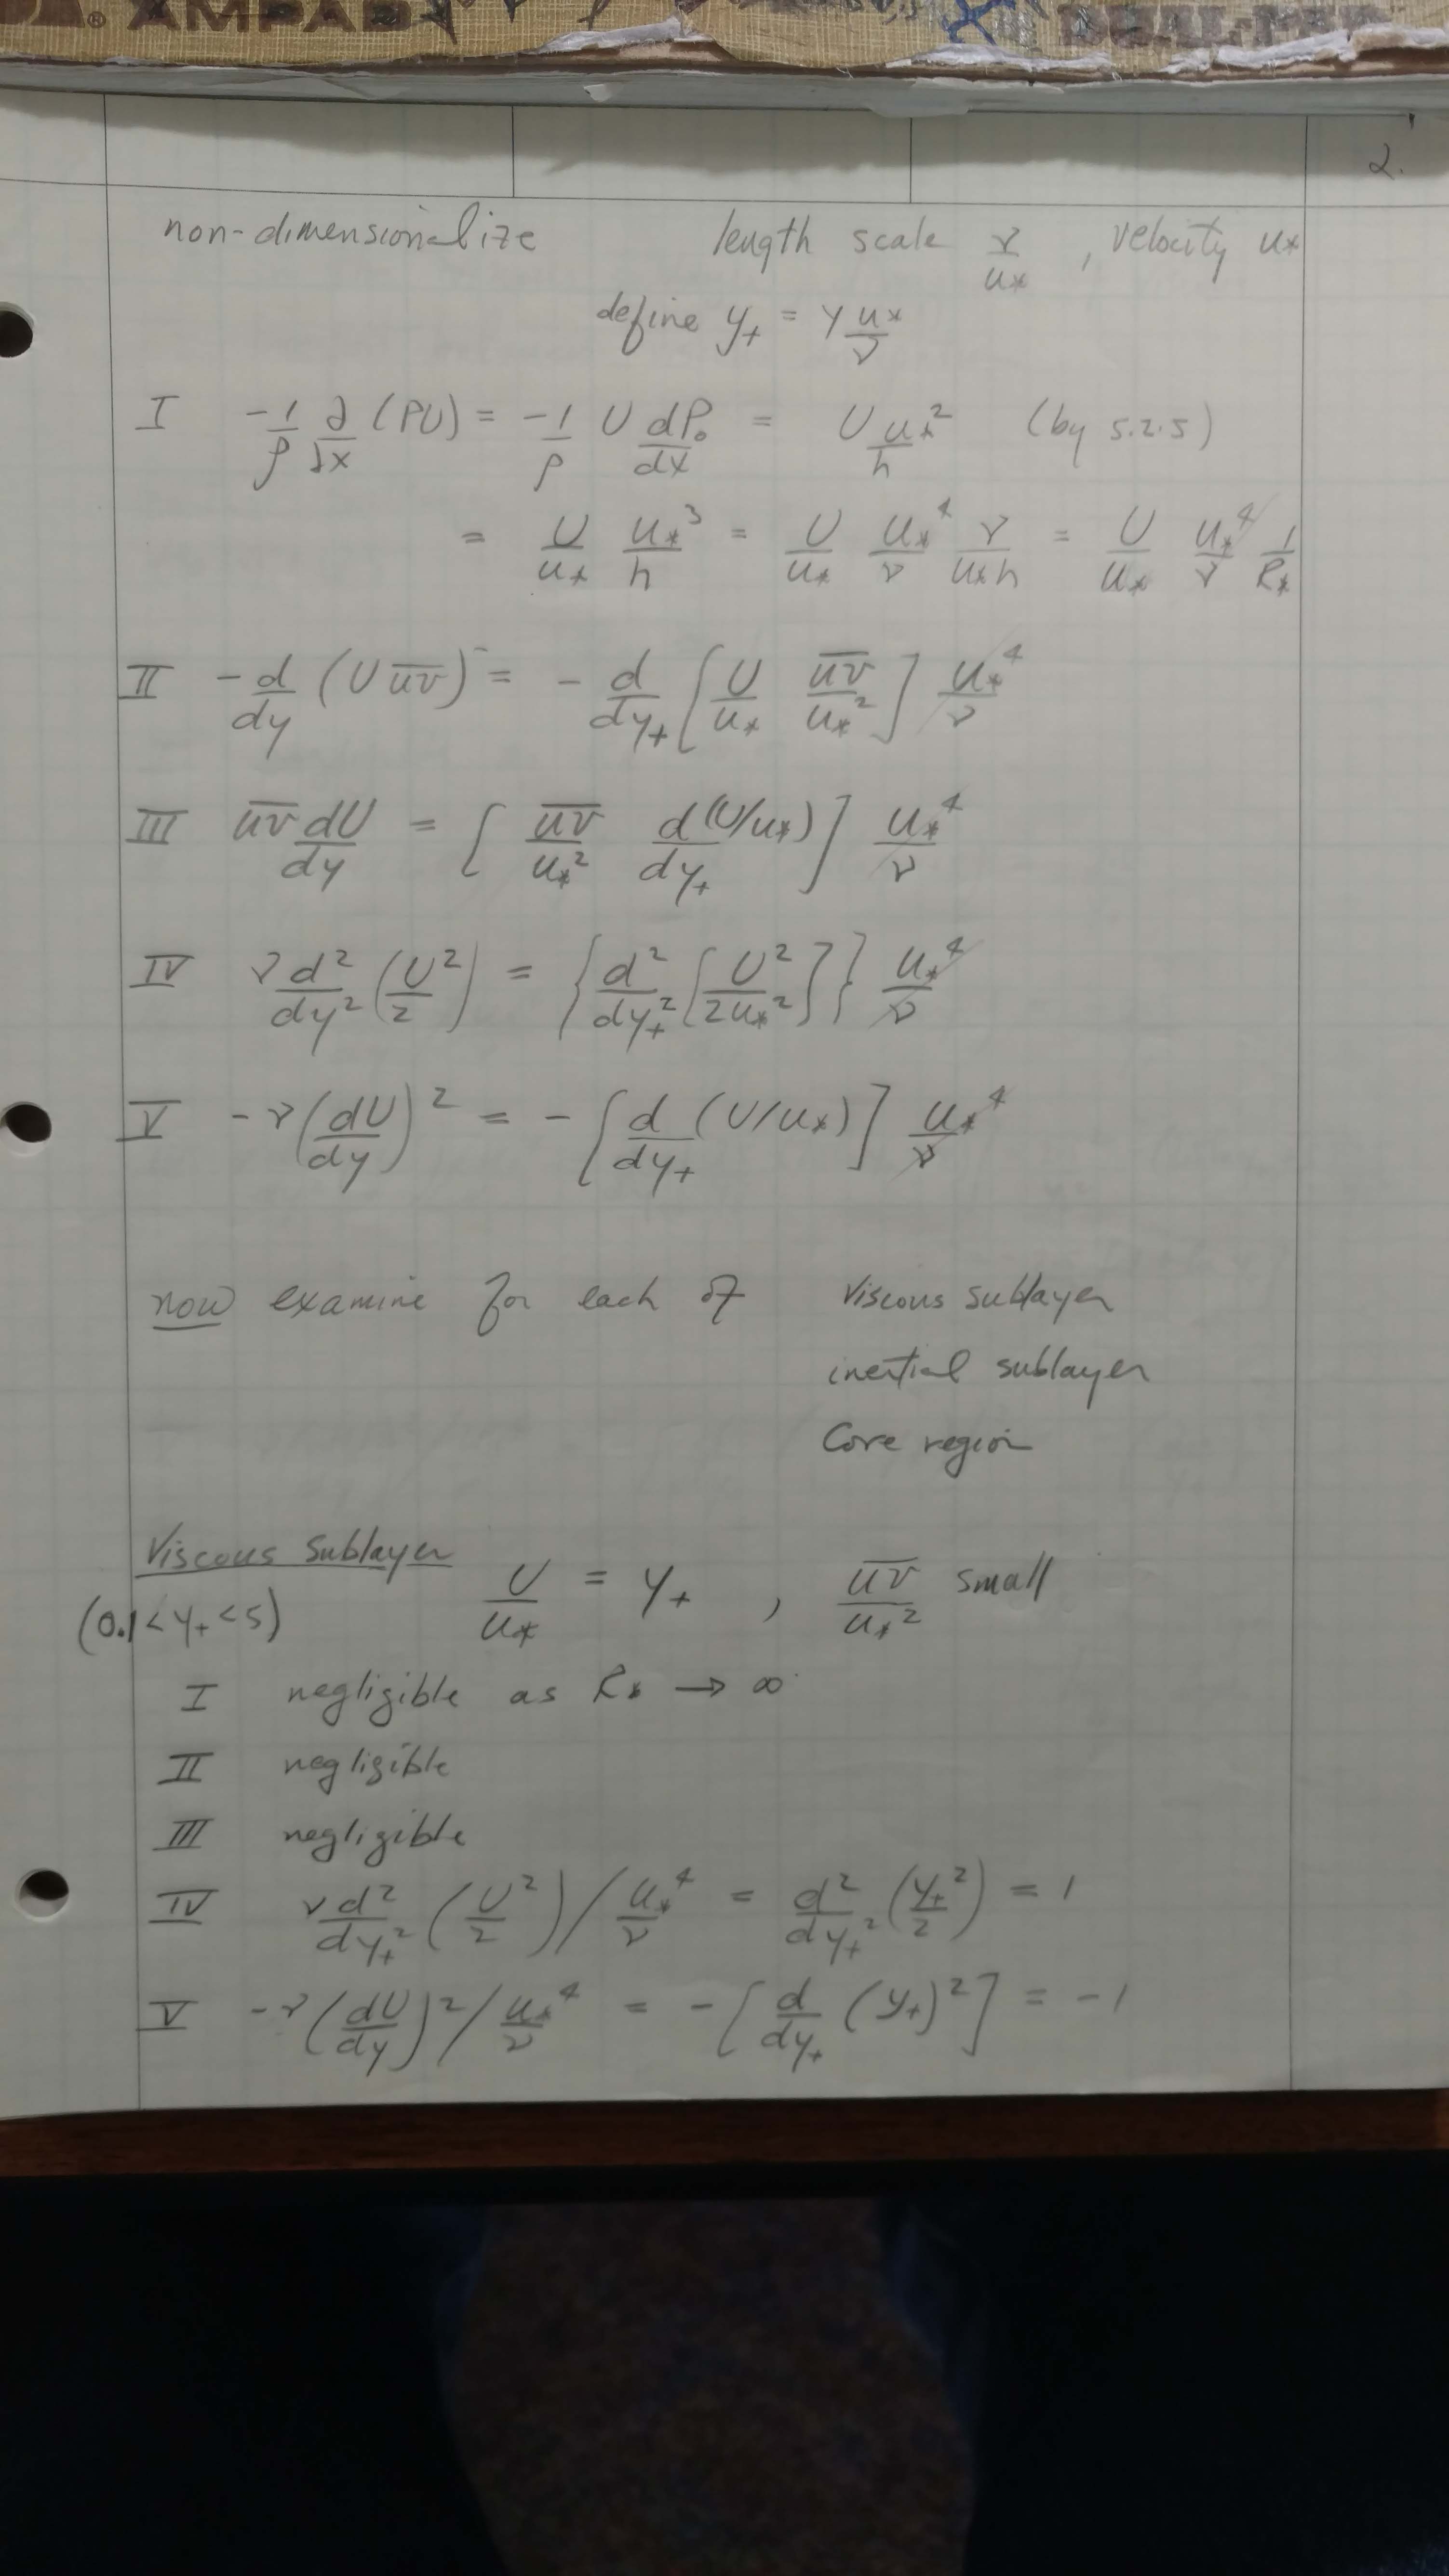 AMPAD
2.
non-dimensionalize length scale ν/u* , velocity u*
define y+ = y u*/ν
I -1/ρ ∂/∂x (PU) = -1/ρ U dP₀/dx = U u*²/h (by 5.2.5)
= U/u* u*³/h = U/u* u*⁴/ν ν/u*h = U/u* u*⁴/ν 1/R*
II -d/dy (U u̅v̅) = - d/dy+ [U/u* u̅v̅/u*²] u*⁴/ν
III u̅v̅ dU/dy = [u̅v̅/u*² d(U/u*)/dy+] u*⁴/ν
IV ν d²/dy² (U²/2) = {d²/dy+² [U²/2u*²]} u*⁴/ν
V -ν(dU/dy)² = -[d/dy+ (U/u*)] u*⁴/ν
now examine for each of viscous sublayer
inertial sublayer
Core region
Viscous Sublayer U/u* = y+ , u̅v̅/u*² small
(0.1 < y+ < 5)
I negligible as R* → ∞
II negligible
III negligible
IV ν d²/dy+² (U²/2) / u*⁴/ν = d²/dy+² (y+²/2) = 1
V -ν(dU/dy)² / u*⁴/ν = -[d/dy+ (y+)²] = -1